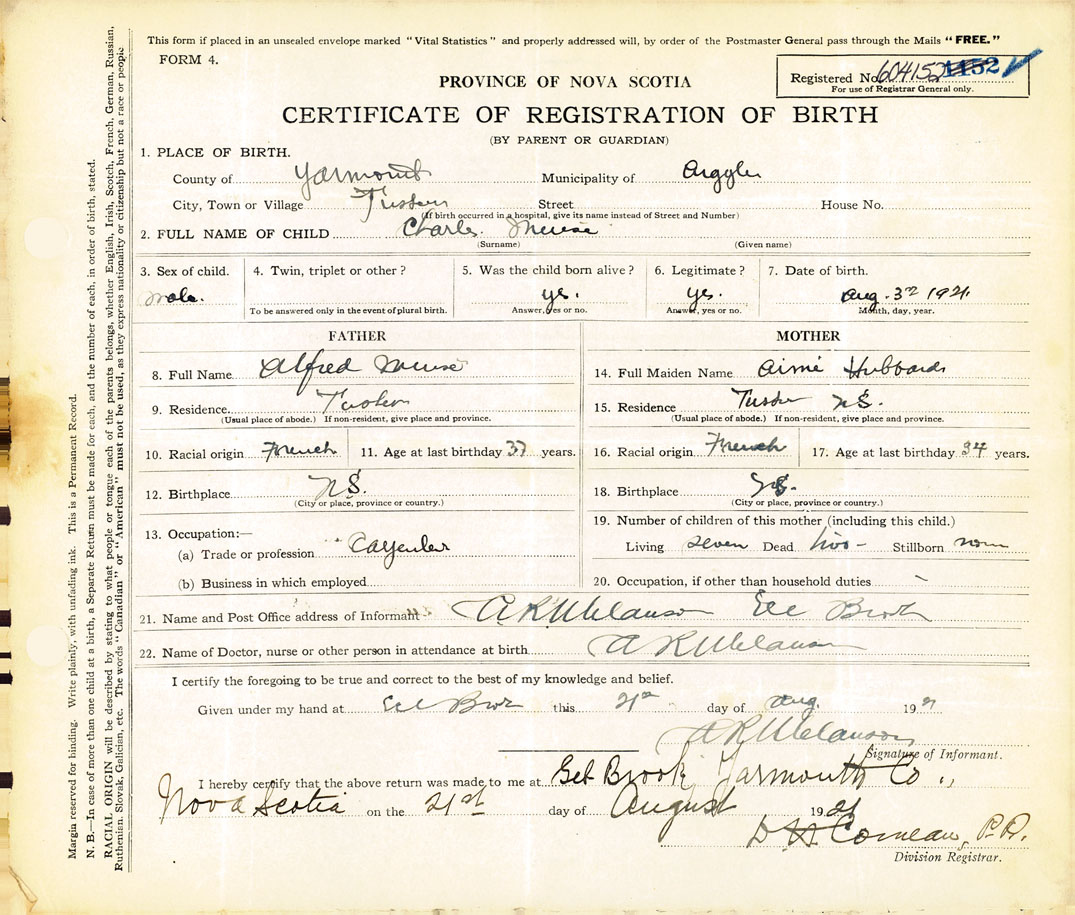 This form if placed in an unsealed envelope marked "Vital Statistics" and properly addressed will, by order of the Postmaster General pass through the Mails "FREE."
FORM 4.
PROVINCE OF NOVA SCOTIA
Registered No. 604152
For use of Registrar General only.
CERTIFICATE OF REGISTRATION OF BIRTH
(BY PARENT OR GUARDIAN)
1. PLACE OF BIRTH.
County of Yarmouth Municipality of Argyle
City, Town or Village Tusket Street House No.
(If birth occurred in a hospital, give its name instead of Street and Number)
2. FULL NAME OF CHILD Charles Meuse
(Surname) (Given name)
3. Sex of child. 4. Twin, triplet or other? 5. Was the child born alive? 6. Legitimate? 7. Date of birth.
Male. yes. yes. Aug. 3rd 1921.
To be answered only in the event of plural birth. Answer, yes or no. Answer, yes or no. Month, day, year.
FATHER
8. Full Name Alfred Meuse
9. Residence Tusket
(Usual place of abode.) If non-resident, give place and province.
10. Racial origin French 11. Age at last birthday 37 years.
12. Birthplace N.S.
(City or place, province or country.)
13. Occupation:—
(a) Trade or profession Carpenter
(b) Business in which employed
MOTHER
14. Full Maiden Name Aimé Hubbard
15. Residence Tusket N.S.
(Usual place of abode.) If non-resident, give place and province.
16. Racial origin French 17. Age at last birthday 34 years.
18. Birthplace N.S.
(City or place, province or country.)
19. Number of children of this mother (including this child.)
Living seven Dead two - Stillborn none
20. Occupation, if other than household duties
21. Name and Post Office address of Informant A R Melanson Eel Brook
22. Name of Doctor, nurse or other person in attendance at birth A R Melanson
I certify the foregoing to be true and correct to the best of my knowledge and belief.
Given under my hand at Eel Brook this 21st day of Aug. 1921
A R Melanson
Signature of Informant.
I hereby certify that the above return was made to me at Eel Brook Yarmouth Co.,
Nova Scotia on the 21st day of August 1921
D H Comeau, P.P.
Division Registrar.
Margin reserved for binding. Write plainly, with unfading ink. This is a Permanent Record.
N. B.—In case of more than one child at a birth, a Separate Return must be made for each, and the number of each, in order of birth, stated.
RACIAL ORIGIN will be described by stating to what people or tongue each of the parents belongs, whether English, Irish, Scotch, French, German, Russian,
Ruthenian, Slovak, Galician, etc. The words "Canadian" or "American" must not be used, as they express nationality or citizenship but not a race or people